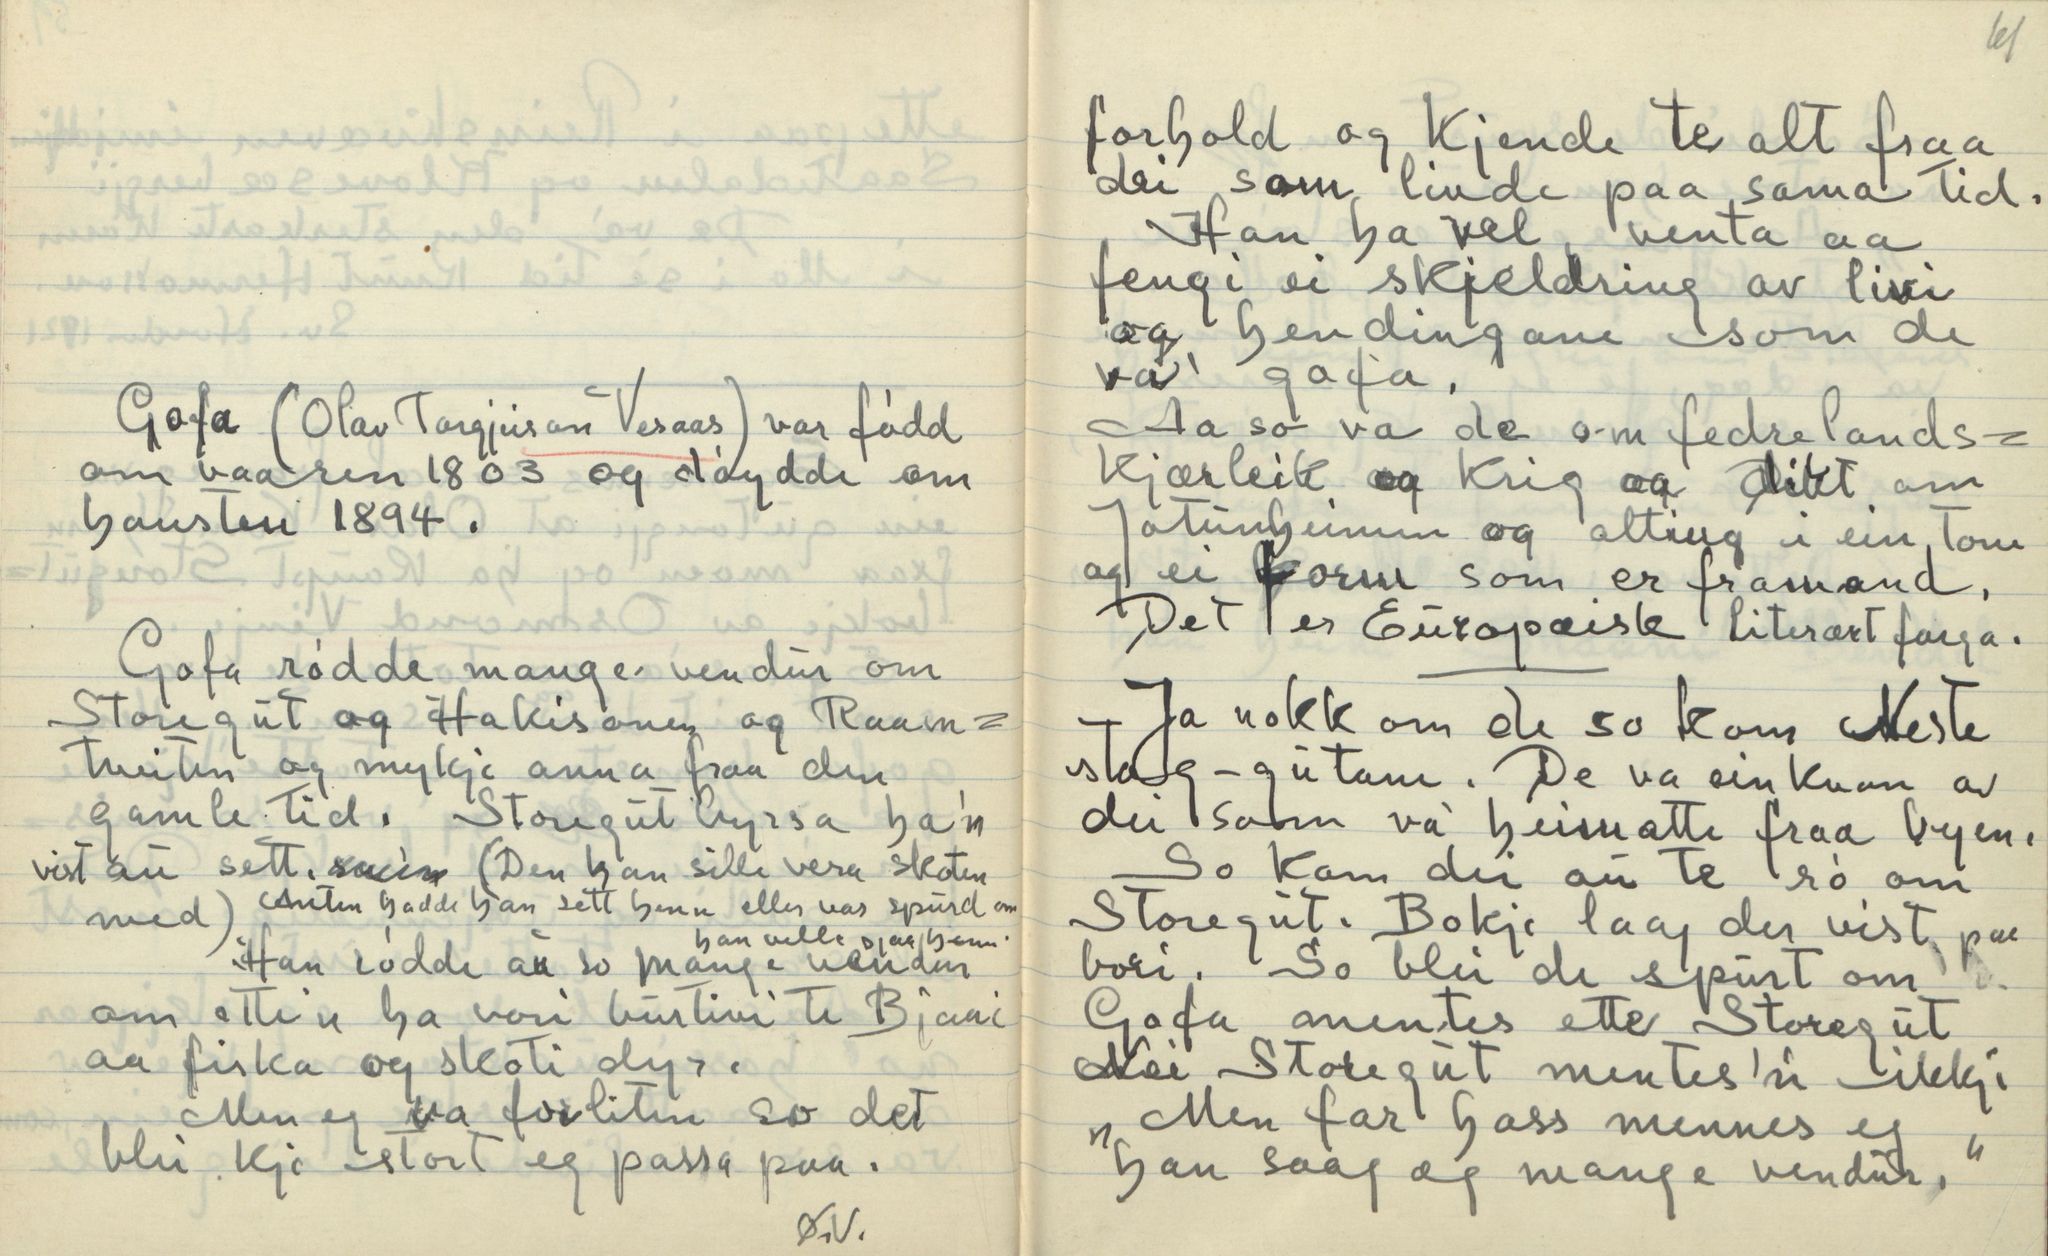 Gofa (Olav Targjuson Vesaas) var fødd
om vaaren 1803 og døydde om
hausten 1894.
Gofa rødde mange vendur om
Storegut og Hakisonen og Raam=
tveiten og mykje anna fraa den
gamle tid. Storegutbyrsa ha'n
vist au sett. (Den han sille vera skoten
med) (Anten hadde han sett henn eller var spurd om
han ville sjaa henn.
Han rødde au so mange vendur
om atte'n ha vori burtivi te Bjaai
aa fiska og skoti dyr.
Men eg va for liten so det
blei kje stort eg passa paa.
Ø.V.
61
forhold og kjende te alt fraa
dei som livde paa sama tid.
Han ha vel venta aa
fengi ei skjeldring av livi
og hendingane som de
va' gofa.
Aa so va de om fedrelands=
kjærleik og krig og dikt om
Jotunheimen og alting i ein tone
og ei form som er framand.
Det er Europæisk literært farga.
– Ja nokk om de so kom Neste
stog-gutane. De va einkvan av
dei som va' heimatte fraa byen.
So kom dei au te rø om
Storegut. Bokje laag der vist paa
bori. So blei de spurt om
Gofa mentes ette Storegut
Nei Storegut mentes'n ikkji
"Men far hass mennes eg
han saag eg mange vendur."